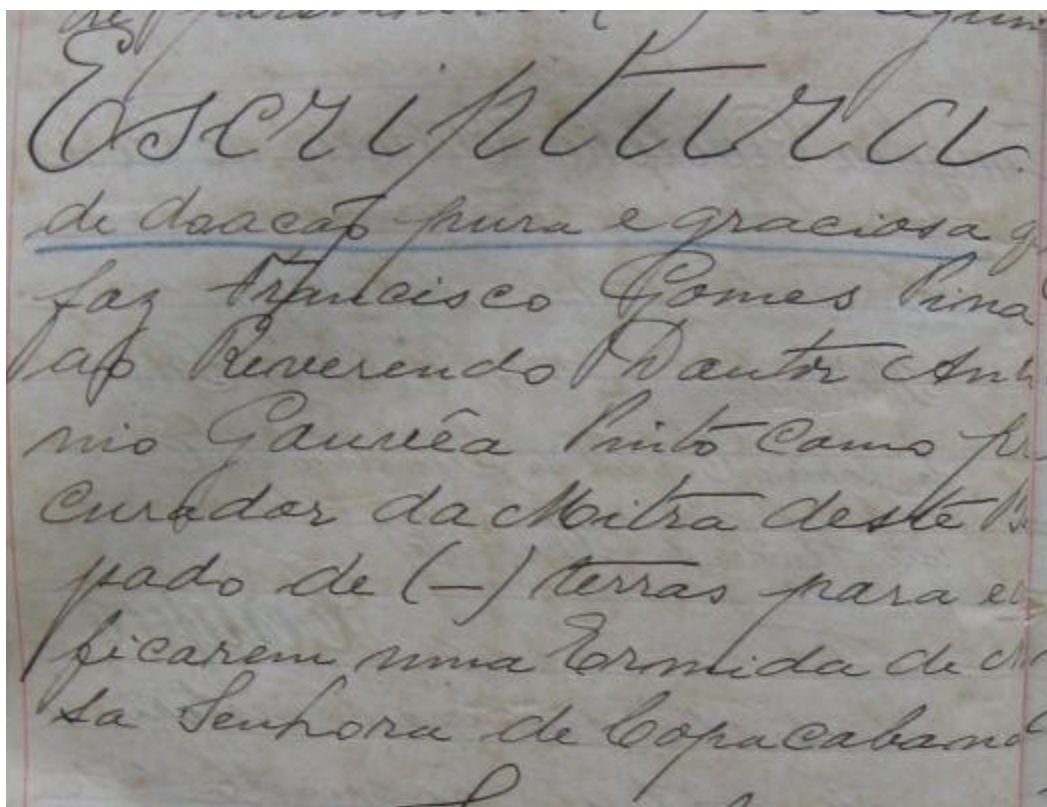 Escriptura
de doacão pura e graciosa q
faz Francisco Gomes Pina
ao Reverendo Doutor Anto
nio Gouvêa Pinto como pr
curador da Mitra deste Bis
pado de (-) terras para e
ficarem uma Ermida de N
sa Senhora de Copacabana